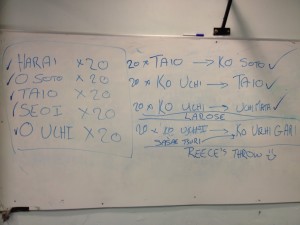 HARAI X20
O SOTO X20
TAIO X20
SEOI X20
O UCHI X20
20 x TAIO → KO SOTO ✓
20 x KO UCHI → TAIO ✓
20 x KO UCHI → UCHI MATA ✓
LAROSE
20 x KO UCHI → KO UCHI GARI
SASAE TSURI
REECE'S THROW